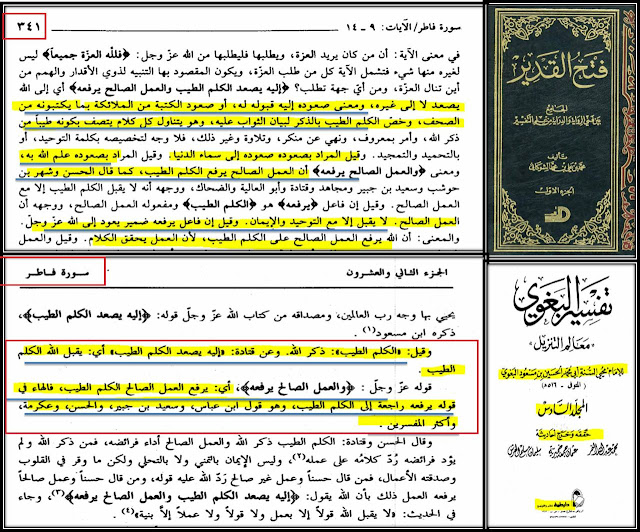 سورة فاطر/الآيات: ٩ - ١٤
٣٤١
في معنى الآية: أن من كان يريد العزة، ويطلبها فليطلبها من الله عزّ وجل: ﴿فللّه العزّة جميعاً﴾ ليس
لغيره منها شيء فتشمل الآية كل من طلب العزة، ويكون المقصود بها التنبيه لذوي الأقدار والهمم من
أين تنال العزة، ومن أيّ جهة تطلب؟ ﴿إليه يصعد الكلم الطيب والعمل الصالح يرفعه﴾ أي إلى الله
يصعد لا إلى غيره، ومعنى صعوده إليه قبوله له، أو صعود الكتبة من الملائكة بما يكتبونه من
الصحف، وخصّ الكلم الطيب بالذكر لبيان الثواب عليه، وهو يتناول كل كلام يتصف بكونه طيباً من
ذكر الله، وأمر بمعروف، ونهي عن منكر، وتلاوة وغير ذلك، فلا وجه لتخصيصه بكلمة التوحيد، أو
بالتحميد والتمجيد. وقيل المراد بصعوده صعوده إلى سماء الدنيا. وقيل المراد بصعوده علم الله به،
ومعنى ﴿والعمل الصالح يرفعه﴾ أن العمل الصالح يرفع الكلم الطيب، كما قال الحسن وشهر بن
حوشب وسعيد بن جبير ومجاهد وقتادة وأبو العالية والضحاك، ووجهه أنه لا يقبل الكلم الطيب إلا مع
العمل الصالح. وقيل إن فاعل ﴿يرفعه﴾ هو ﴿الكلم الطيب﴾ ومفعوله العمل الصالح، ووجهه أن
العمل الصالح. لا يقبل إلا مع التوحيد والإيمان. وقيل إن فاعل يرفعه ضمير يعود إلى الله عزّ وجلّ.
والمعنى: أن الله يرفع العمل الصالح على الكلم الطيب، لأن العمل يحقق الكلام. وقيل والعمل
فتح القدير
الجامع
بين فني الرواية والدراية من علم التفسير
تأليف
محمد بن علي بن محمد الشوكاني
الجزء الأول
الجزء الثاني والعشرون
سورة فاطر
يحيي بها وجه رب العالمين، ومصداقه من كتاب الله عزّ وجلّ قوله: ﴿إليه يصعد الكلم الطيب﴾،
ذكره ابن مسعود(١).
وقيل: «الكلم الطيب»: ذكر الله. وعن قتادة: «إليه يصعد الكلم الطيب» أي: يقبل الله الكلم
الطيب.
قوله عزّ وجلّ: ﴿والعمل الصالح يرفعه﴾، أي: يرفع العمل الصالح الكلم الطيب، فالهاء في
قوله يرفعه راجعة إلى الكلم الطيب، وهو قول ابن عباس، وسعيد بن جبير، والحسن، وعكرمة،
وأكثر المفسرين.
وقال الحسن وقتادة: الكلم الطيب ذكر الله والعمل الصالح أداء فرائضه، فمن ذكر الله ولم
يؤد فرائضه رُدّ كلامُه على عمله(٢)، وليس الإيمان بالتمني ولا بالتحلي ولكن ما وقر في القلوب
وصدقته الأعمال، فمن قال حسناً وعمل غير صالح ردّ الله عليه قوله، ومن قال حسناً وعمل صالحاً
يرفعه العمل ذلك بأن الله يقول: ﴿إليه يصعد الكلم الطيب والعمل الصالح يرفعه﴾(٣)، وجاء
في الحديث: «لا يقبل الله قولاً إلا بعمل ولا قولاً ولا عملاً إلاّ بنية»(٤).
تفسير البغوي
«معالم التنزيل»
للإمام محيي السنة أبي محمد الحسين بن مسعود البغوي
(المتوفى - ٥١٦هـ)
المجلد السادس
حققه وخرج أحاديثه
محمد عبد الله النمر
عثمان جمعة ضميرية
سليمان مسلم الحرش